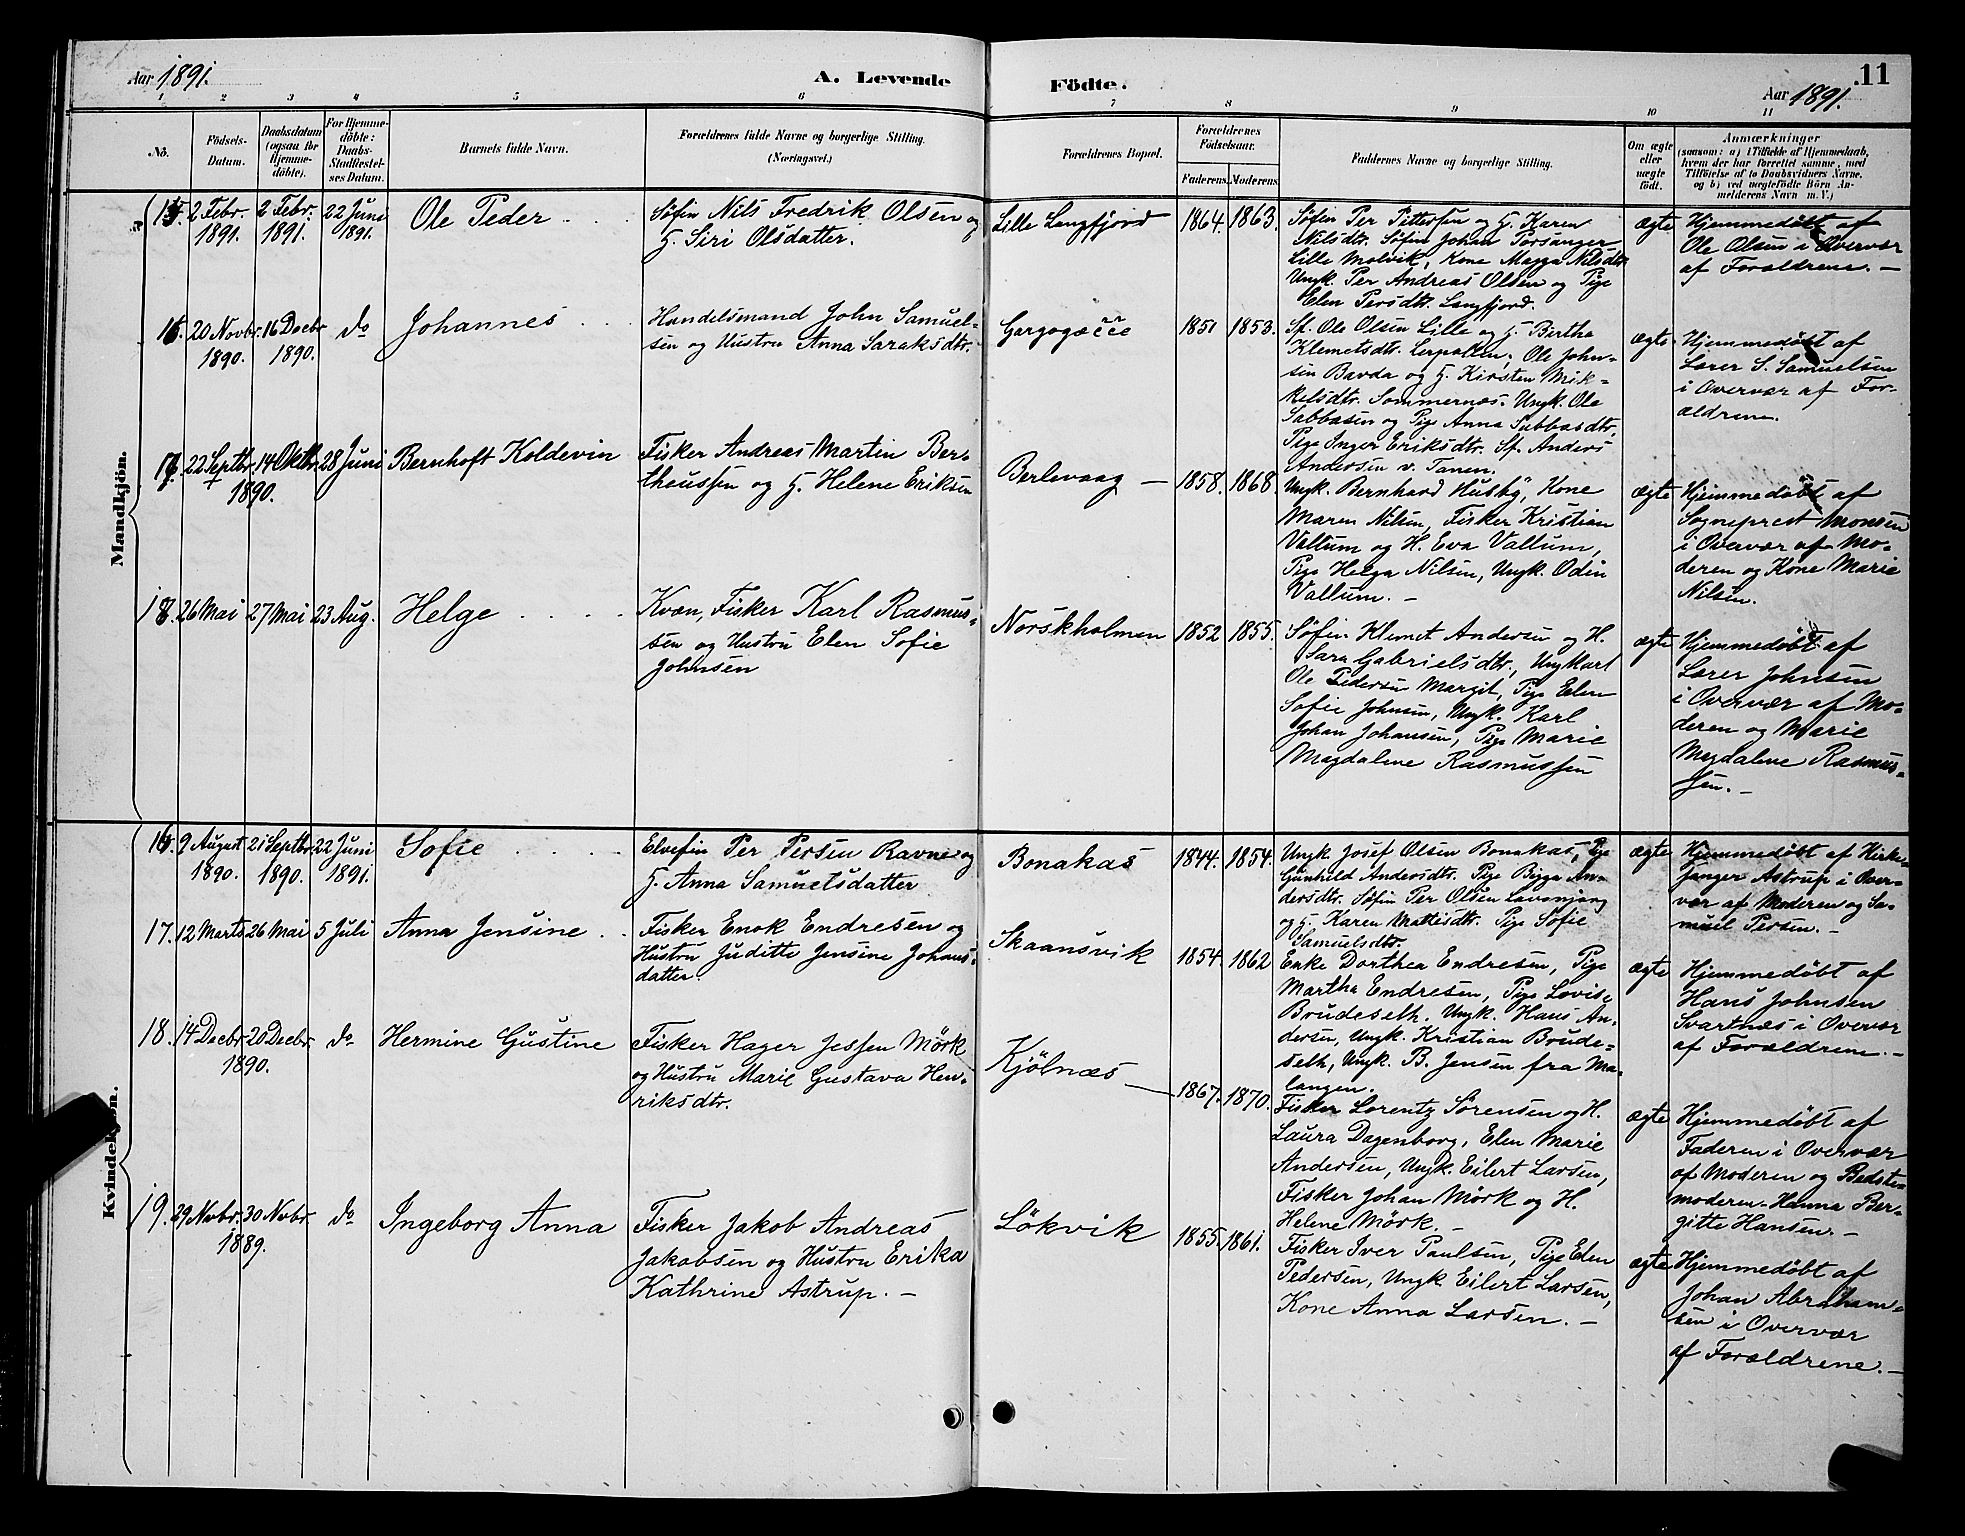 Aar 1891.
A. Levende
Födte.
Aar 1891.
11
1 2 3 4 5 6 7 8 9 10 11
No.
Födsels-
Datum.
Daabsdatum
(ogsaa for
Hjemme-
döbte).
For Hjemme-
döbte:
Daabs-
Stadfæstel-
ses Datum.
Barnets fulde Navn.
Forældrenes fulde Navne og borgerlige Stilling.
(Næringsvei.)
Forældrenes Bopæl.
Forældrenes
Födselsaar.
Faderens. Moderens.
Faddernes Navne og borgerlige Stilling.
Om ægte
eller
uægte
födt.
Anmærkninger
(saasom: a) i Tilfælde af Hjemmedaab,
hvem der har forrettet samme, med
Tilföielse af to Daabsvidners Navne,
og b) ved uægtefödte Börn An-
melderens Navn m. V.)
Mandkjön.
15. 2 Febr. 1891. 2 Febr. 1891. 22 Juni 1891.
Ole Peder
Søfin Nils Fredrik Olsen og
H. Siri Olsdatter.
Lille Langfjord
1864. 1863.
Søfin Per Pettersen og H. Karen
Nilsdtr. Søfin Johan Porsanger
Lille Molvik, Kone Magga Nilsdtr
Ungk. Per Andreas Olsen og Pige
Elen Persdtr. Langfjord.
ægte
Hjemmedøbt af
Ole Olsen i Overvær
af Forældrene. —
16. 20 Novbr. 1890. 16 Decbr. 1890. do
Johannes
Handelsmand John Samuel-
sen og Hustru Anna Saraksdtr.
Gargogæčče
1851 1853.
Sf. Ole Olsen Lille og H. Birtha
Klemetsdtr. Lerpollen; Ole John-
sen Bavda og H. Kirsten Mik-
kelsdtr. Sommernæs. Ungk. Ole
Sabbasen og Pige Anna Sabbasdtr.
Pige Inger Eriksdtr. Sf. Anders
Andersen v. Tanen.
ægte
Hjemmedøbt af
Lærer S. Samuelsen
i Overvær af For-
ældrene.
17. 22 Septbr. 14 Oktbr. 1890. 28 Juni
Bernhoft Koldevin
Fisker Andreas Martin Ber-
theussen og H. Helene Eriksen
Berlevaag —
1858. 1868.
Ungk. Bernhard Husby, Kone
Maren Nilsen, Fisker Kristian
Vallum og H. Eva Vallum,
Pige Helga Nilsen, Ungk. Odin
Vallum. —
ægte
Hjemmedøbt af
Sogneprest Monsen
i Overvær af Mo-
deren og Kone Marie
Nilsen.
18. 26 Mai 27 Mai 23 Aug.
Helge
Kvæn, Fisker Karl Rasmus-
sen og Hustru Elen Sofie
Johnsen
Norskholmen
1852 1855.
Søfin Klemet Andersen og H.
Sara Gabrielsdtr., Ungkarl
Ole Pedersen Margit, Pige Elen
Sofie Johnsen, Ungk. Karl
Johan Johansen, Pige Marie
Magdalene Rasmussen
ægte
Hjemmedøbt af
Lærer Johnsen
i Overvær af Mo-
deren og Marie
Magdalene Rasmus-
sen. —
Kvindekjön.
16. 9 August 1890. 21 Septbr. 1890. 22 Juni 1891.
Sofie
Elvefin Per Persen Ravne og
H. Anna Samuelsdatter
Bonakas
1844. 1854.
Ungk. Josef Olsen Bonakas, Pige
Gunhild Andersdtr. Pige Bigga An-
dersdtr. Søfin Per Olsen Lavonjarg
og H. Karen Mattisdtr. Pige Sofie
Samuelsdtr.
ægte
Hjemmedøbt af Kirke-
sanger Astrup i Over-
vær af Moderen og Sa-
muel Persen. —
17. 12 Marts 26 Mai 5 Juli
Anna Jensine
Fisker Enok Endresen og
Hustru Juditte Jensine Johans-
datter.
Skaansvik
1854. 1862
Enke Dorthea Endresen, Pige
Martha Endresen, Pige Lovise
Brudeseth. Ungk. Hans An-
dersen, Ungk. Kristian Brude-
seth, Ungk. B. Jensen fra Ma-
langen.
ægte
Hjemmedøbt af
Hans Johnsen
Svartnæs i Overvær
af Forældrene. —
18. 14 Decbr. 20 Decbr. 1890. do
Hermine Gustine
Fisker Hager Jessen Mörk
og Hustru Marie Gustava Hen-
riksdtr.
Kjölnæs —
1867. 1870.
Fisker Lorentz Sørensen og H.
Laura Dagenborg, Elen Marie
Andersen, Ungk. Eilert Larsen,
Fisker Johan Mörk og H.
Helene Mörk. —
ægte
Hjemmedøbt af
Faderen i Overvær
af Moderen og Bedste-
moderen Hanna Ber-
gitte Hansen. —
19. 29 Novbr. 30 Novbr. 1889. do
Ingeborg Anna
Fisker Jakob Andreas
Jakobsen og Hustru Erika
Kathrine Astrup. —
Lökvik
1855. 1861.
Fisker Iver Paulsen, Pige Elen
Pedersen, Ungk Eilert Larsen,
Kone Anna Larsen. —
ægte
Hjemmedøbt af
Johan Abraham-
sen i Overvær
af Forældrene. —